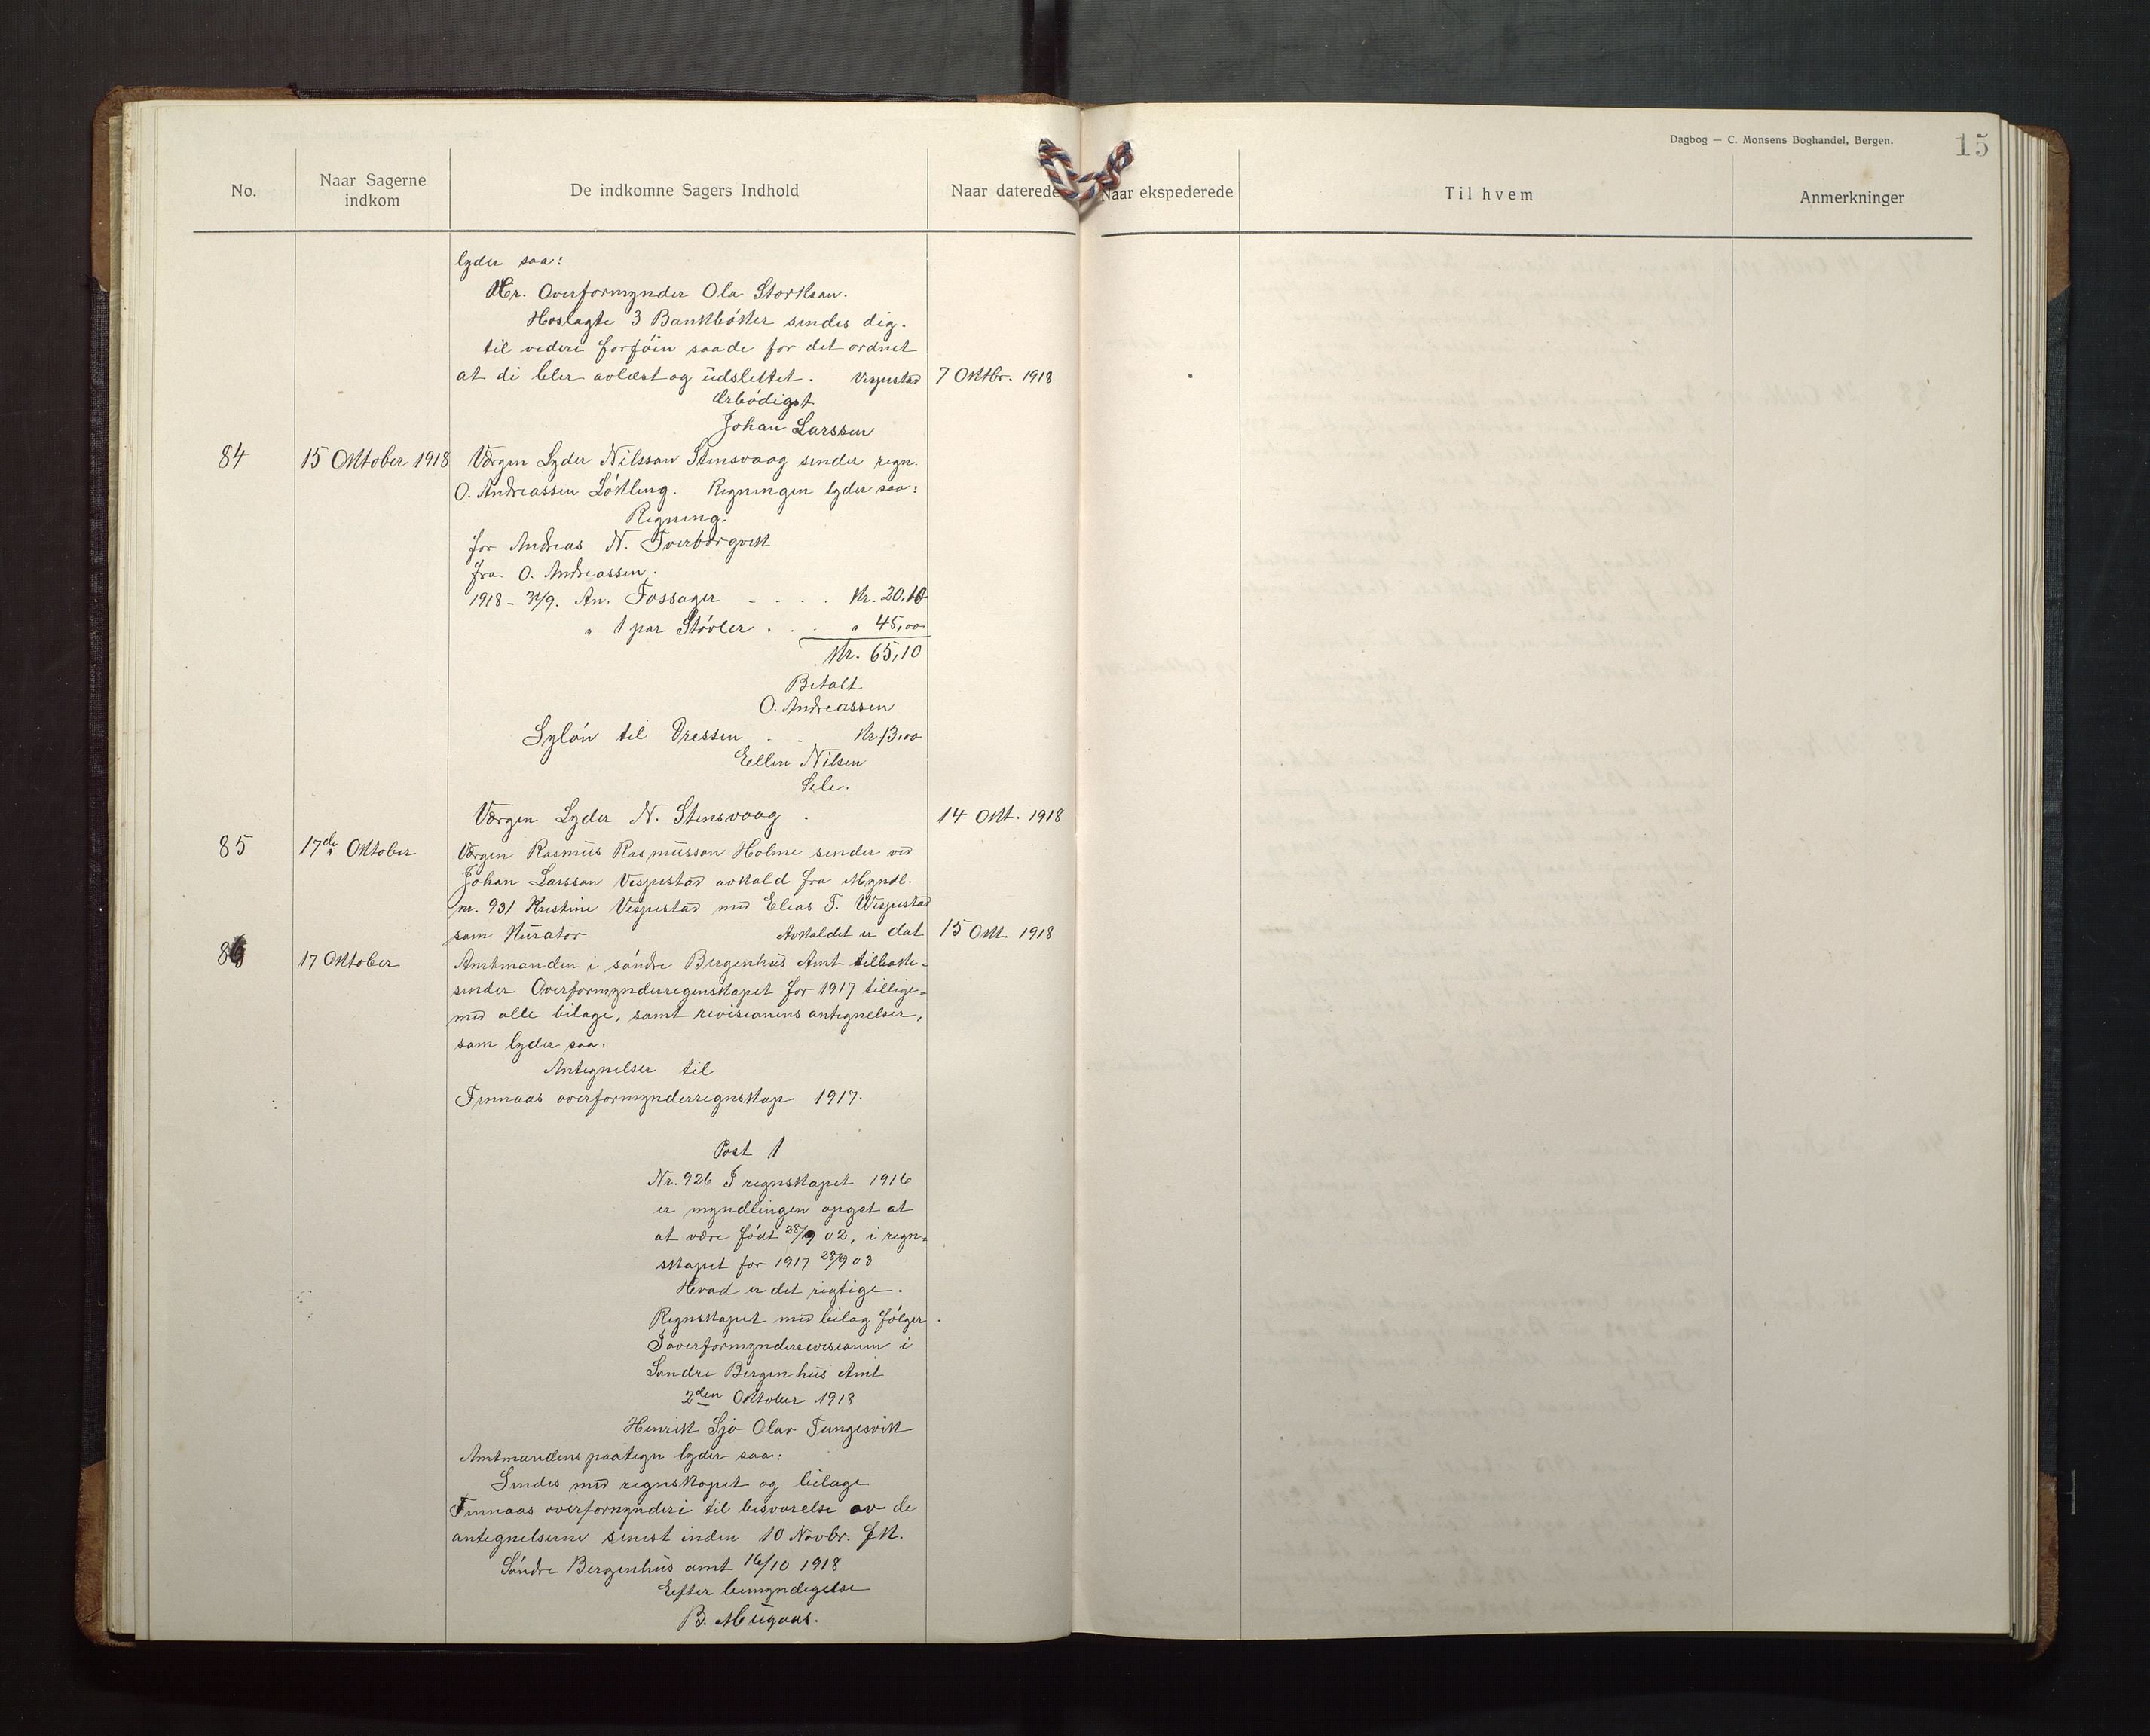 Dagbog — C. Monsens Boghandel, Bergen.
15
No.
Naar Sagerne indkom
De indkomne Sagers Indhold
Naar daterede
Naar ekspederede
Til hvem
Anmerkninger
lyder saa:
Hr. Overformynder Ola Storksan.
Hoslagte 3 Bankbøker sendes dig.
til videre forføin saade for det ordnet
at di bler avlæst og udslettet. Vespestad 7 Oktbr. 1918
Ærbødigst
Johan Larssen
84 15 Oktober 1918 Værgen Lyder Nilsson Stensvaag sender regn.
O. Andreassen Løkling. Regningen lyder saa:
Regning.
for Andreas N. Tverborgvik
fra O. Andreassen.
1918 - An. Tossager - . . . Kr. 20,10
" 1 par Støvler . . . " 45,00
Kr. 65,10
Betalt
O. Andreassen
Syløn til Dressen - - Kr. 13,00
Eellen Nilsen
Sele.
Værgen Lyder N. Stensvaag . 14 Okt. 1918
85 17de Oktober Værgen Rasmus Rasmusson Holme sender ved
Johan Larsson Vespestad avkald fra Myndl.
nr. 931 Kristine Vespestad med Elias T. Wespestad
som Kurator Avkaldet er dat 15 Okt 1918
86 17 Oktober Amtmanden i søndre Bergenhus Amt tilbake-
sender Overformynderregenskapet for 1917 tillige-
med alle bilage, samt revisionens antegnelser,
som lyder saa:
Antegnelser til
Finnaas overformynderregnskap 1917.
Post 1
Nr. 926 I regnskapet 1916
er myndlingen opget at
at være født 28/9 02, i regn-
skapet for 1917 28/9 03
Hvad er det rigtige.
Regnskapet med bilag følger.
I overformynderrevisionen i
Søndre Bergenhus Amt
2den Oktober 1918
Henrik Sjo Olav Tungesvik
Amtmandens paategn lyder saa:
Sendes med regnskapet og bilage
Finnaas overformynderi til besvarelse av de
antegnelserne senest inden 10 Novbr. f.k.
Søndre Bergenhus amt 16/10 1918
Eefter bemyndegelse
B. Mugaas.